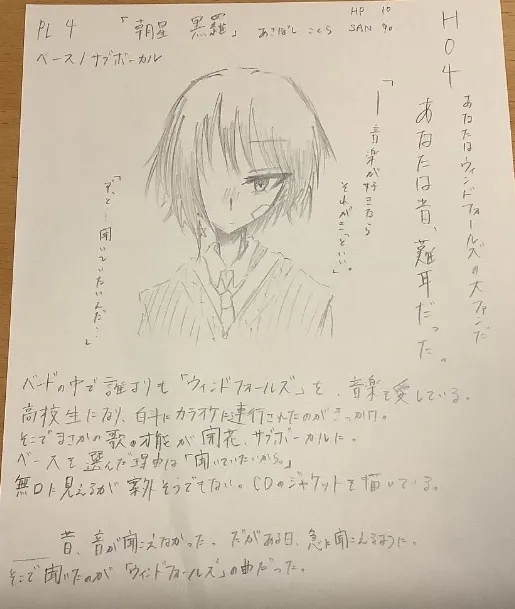 PL 4 「朝星 黒羅」 あさぼし こくら
HP 10
SAN 90
ベース/サブボーカル
HO4
あなたはウィンドフォールズの大ファンだ
あなたは昔、難耳だった。
「―音楽が好きなら
それがきっといい。
「ずっと…聞いていたいんだ…」
バンドの中で誰よりも「ウィンドフォールズ」を、音楽を愛している。
高校生になり、白斗にカラオケに連行されたのがきっかけ。
そこでまさかの歌の才能が開花、サブボーカルに。
ベースを選んだ理由は「聞いていたいから。」
無口に見えるが案外そうでない。CDのジャケットを描いている。
昔、音が聞こえなかった。だがある日、急に聞こえるように。
そこで聞いたのが「ウィンドフォールズ」の曲だった。